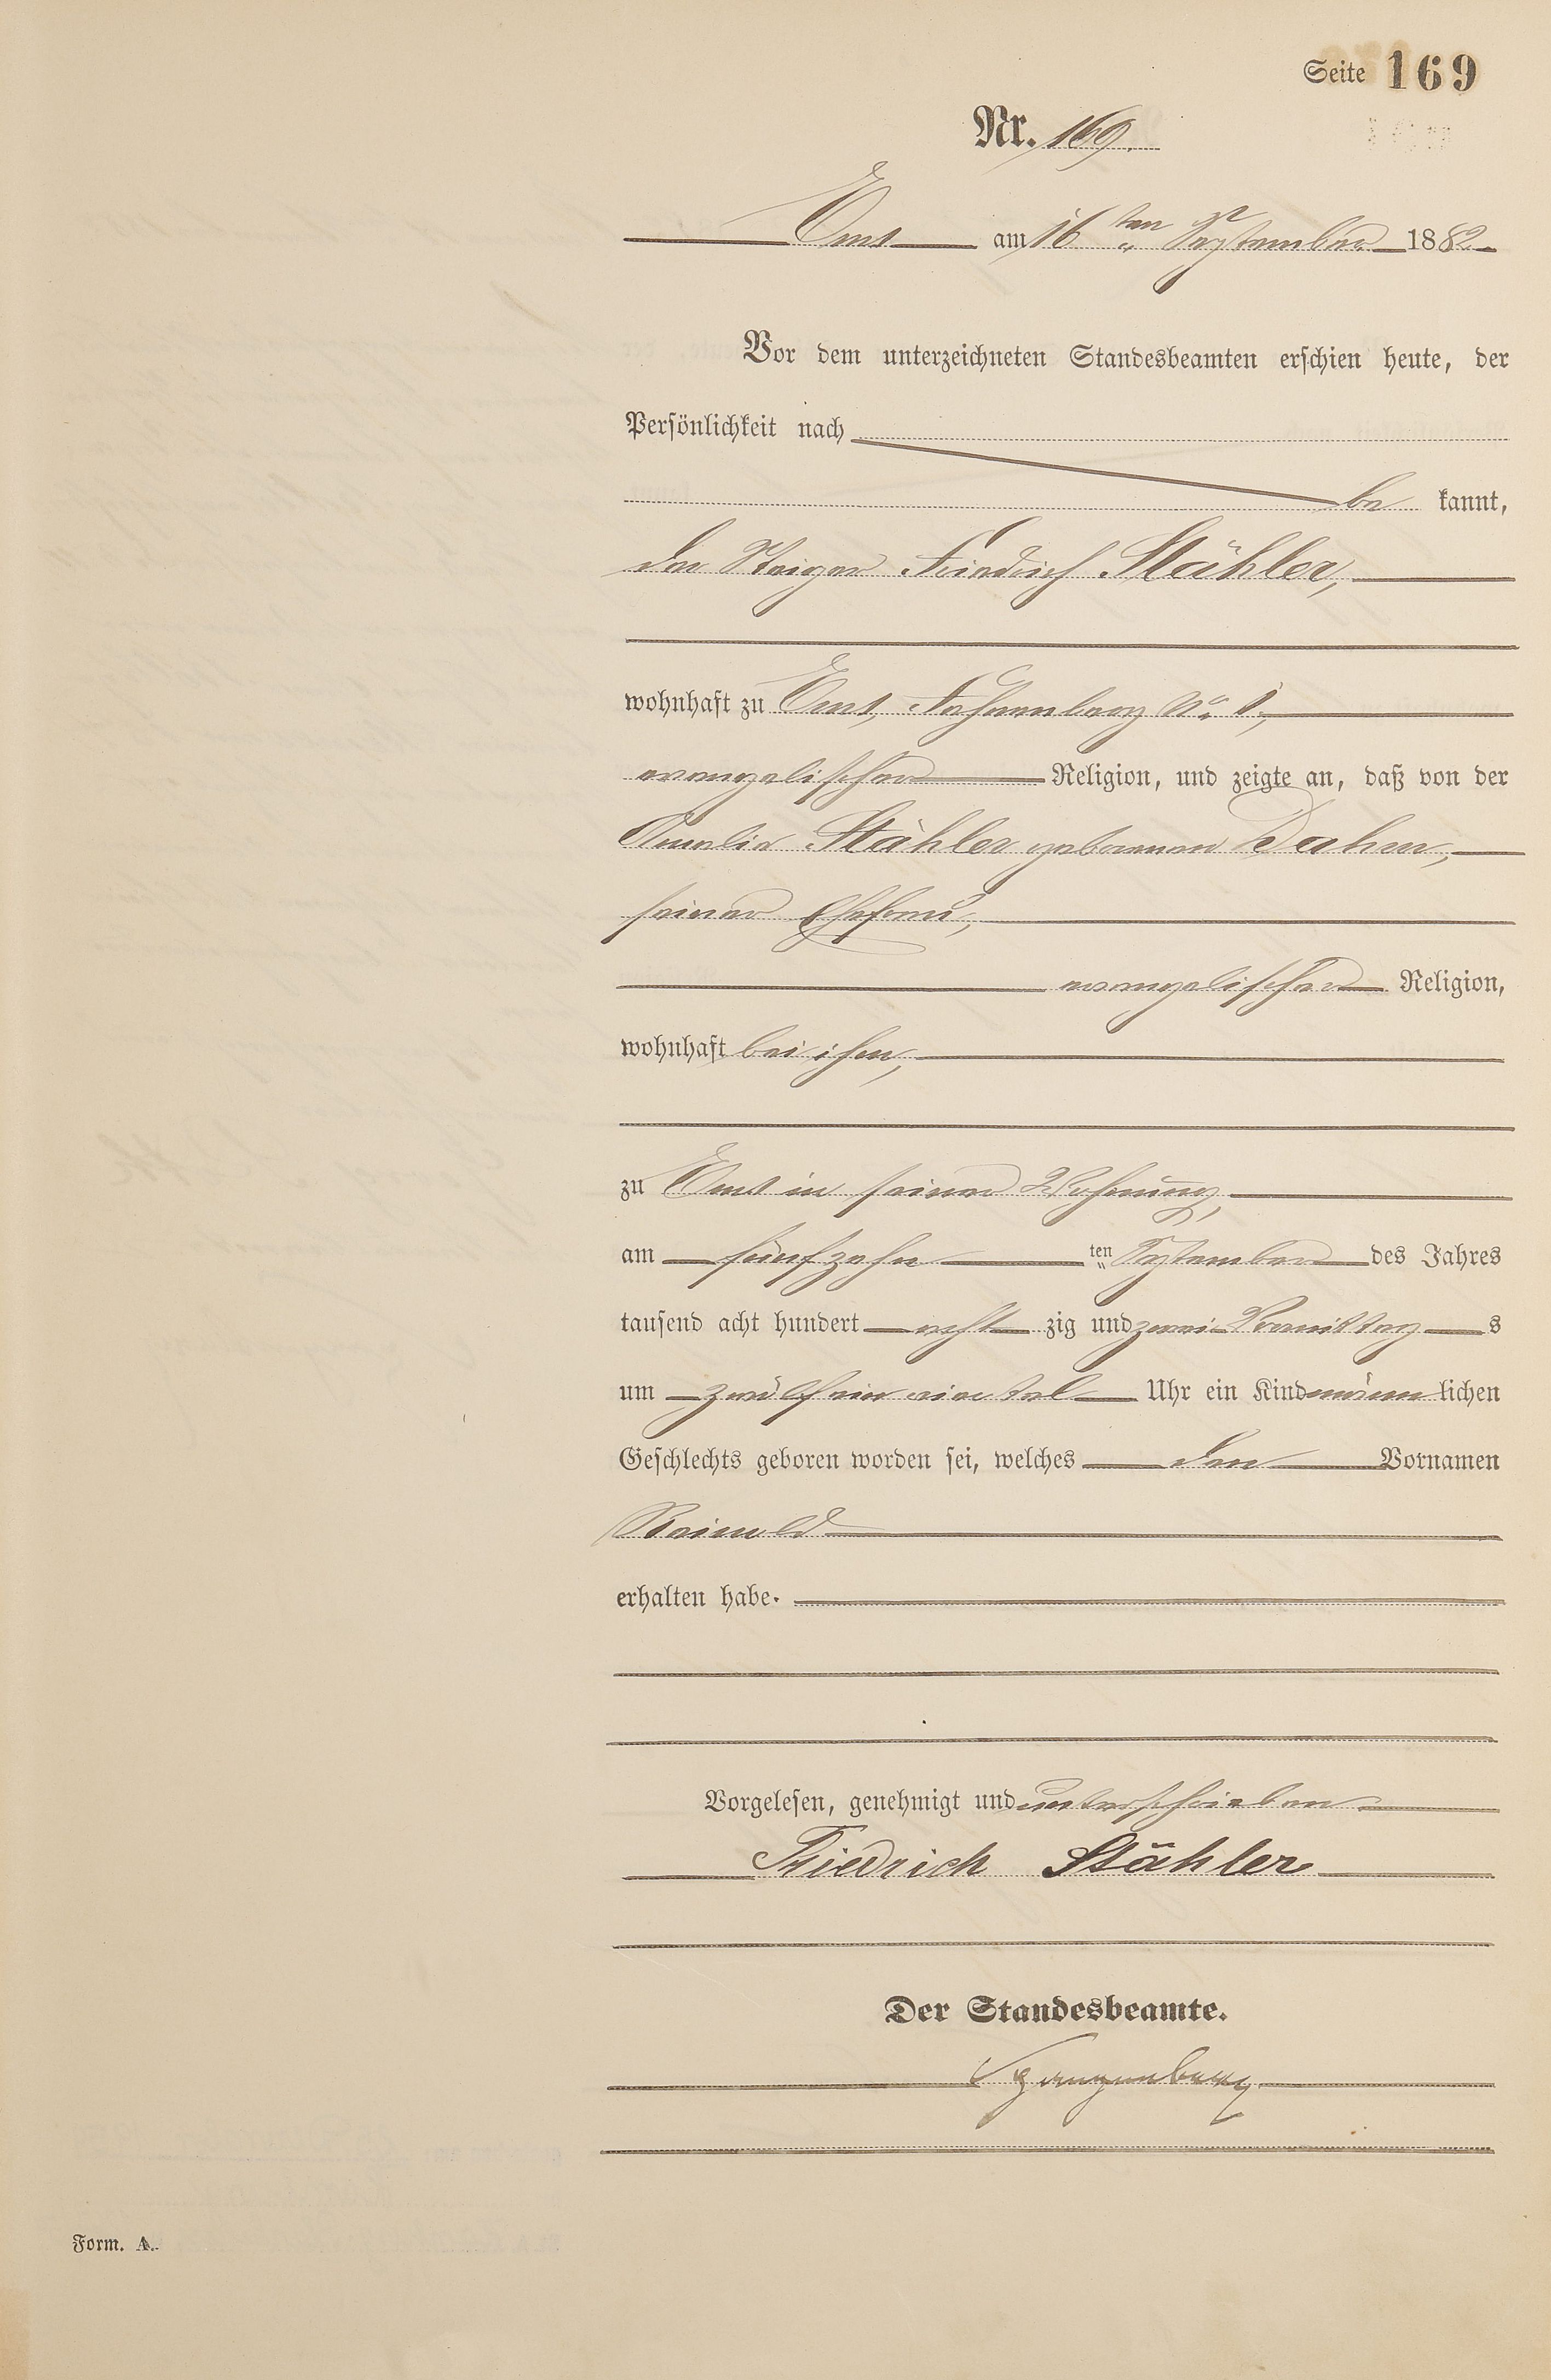 Seite 169
Nr. 169.
Ems am 16ten September 1882.
Vor dem unterzeichneten Standesbeamten erschien heute, der
Persönlichkeit nach
be kannt,
der Steiger Friedrich Stähler,
wohnhaft zu Ems, No 1,
evangelischer Religion, und zeigte an, daß von der
Amalie Stähler geborenen Dahm,
seiner Ehefrau,
evangelischer Religion,
wohnhaft bei ihm,
zu Ems in seiner Wohnung,
am fünfzehn ten September des Jahres
tausend acht hundert acht zig und zwei Vormittag s
um zwölfein viertel Uhr ein Kind männ lichen
Geschlechts geboren worden sei, welches den Vornamen
Reinold
erhalten habe.
Vorgelesen, genehmigt und unterschrieben
Friedrich Stähler
Der Standesbeamte.
Spangenberg
Form. A.